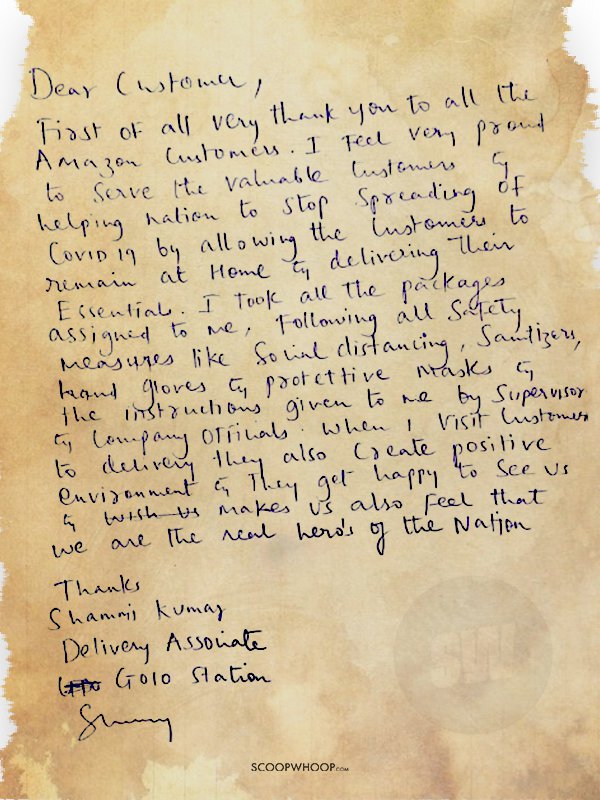 Dear Customer,
First of all very thank you to all the
Amazon Customers. I Feel very proud
to serve the valuable Customers &
helping nation to stop spreading of
Covid 19 by allowing the Customers to
remain at Home & delivering Their
Essential. I Took all the packages
assigned to me, Following all Safety
measures like Social distancing, Sanitizers,
hand gloves & protettive masks &
the instructions given to me by Supervisor
& Company Officials. When I visit Customers
to delivery they also Create positive
environment & They get happy to See us
& wish us makes us also Feel that
we are the real hero's of the Nation
Thanks
Shammi Kumar
Delivery Assoriate
GOIO Station
SCOOPWHOOP.COM